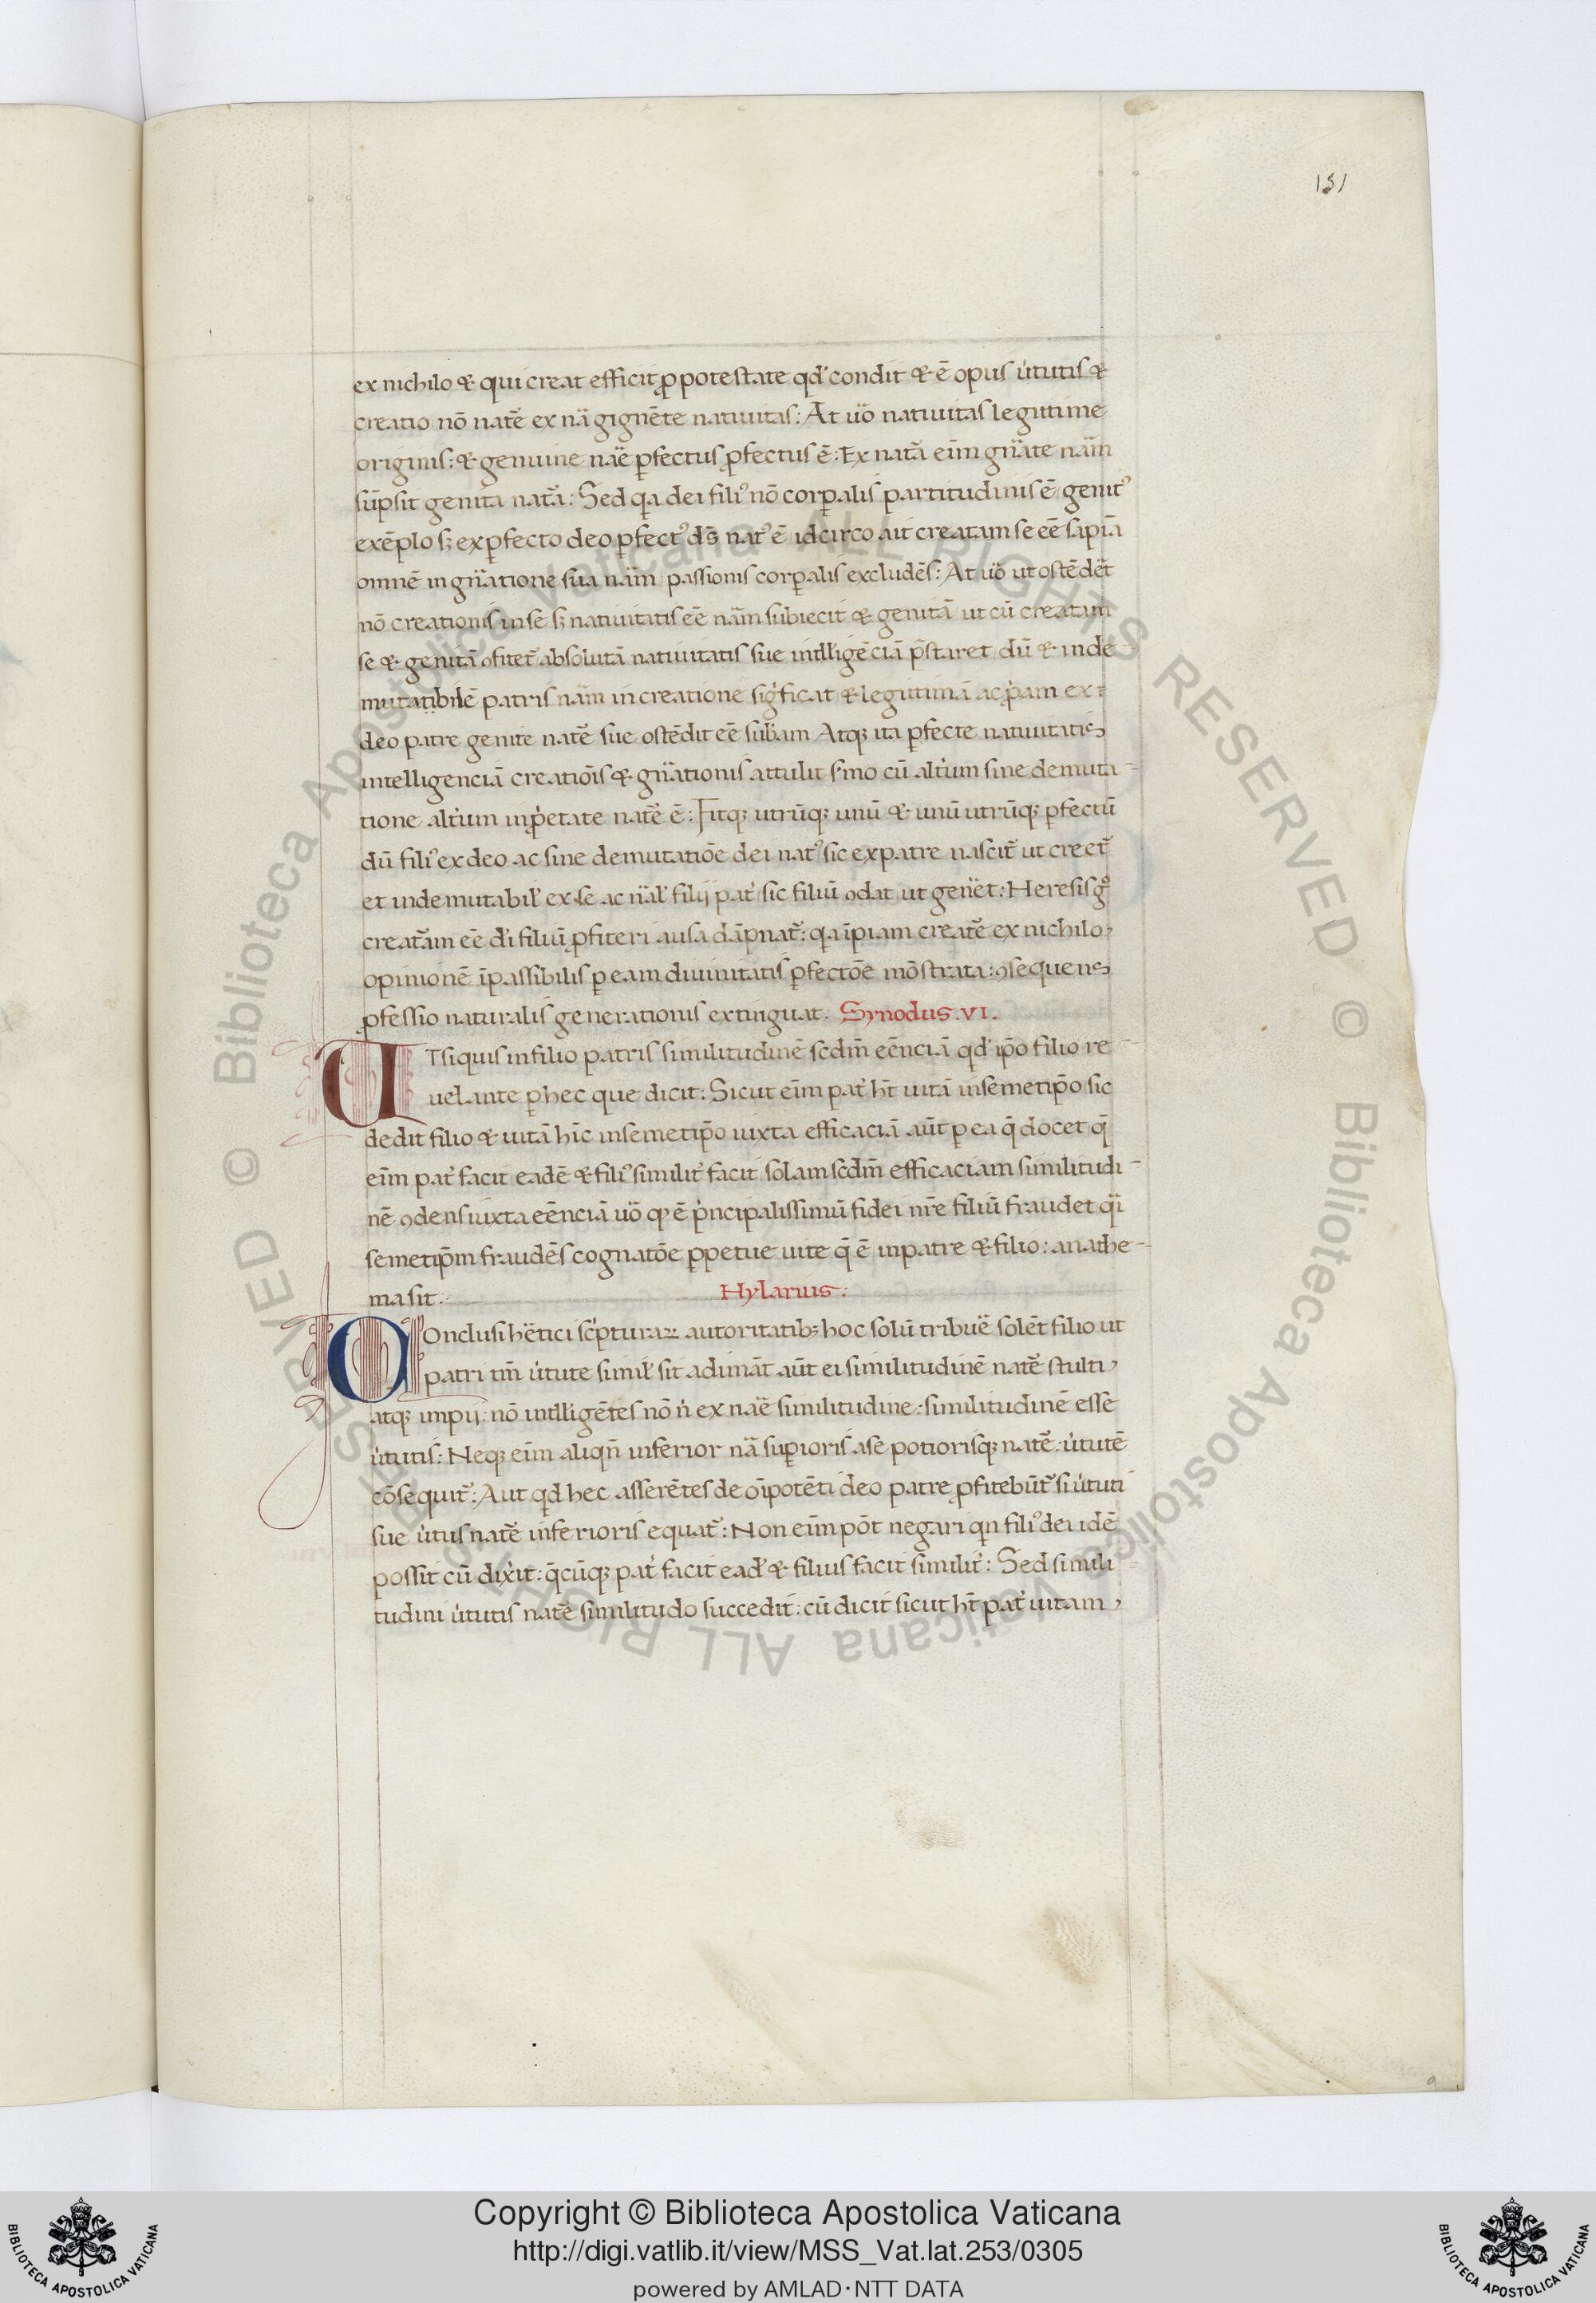 151
ex nichilo & qui creat efficit ꝑ potestate qd' condit & ē opus ů̇tutis &
creatio nō nat̃e ex nã gignēte natiuitas: At uo᷑ natiuitas legittime
originis: & genuine nãe ꝑfectus ꝓfectus ē: Ex natã eīm gñãte nãm
sūpsit genita natã: Sed qa dei fili᷒ nō corꝑalis partitudinis ē genit᷒
exēplo sꝫ ex ꝑfecto deo ꝑfect᷒ ds̄ nat᷒ ē idcirco ait creatam se eē sapīa
omnē in gñãtione sua nãm passionis corꝑalis excludēs: At uõ ut ostēdẽt
nō creationis in se sꝫ natiuitatis eē nãm subiecit & genitā ut cū creatam
se & genitā ꝯfitet̃ absolutā natiuitatis sue intlligēciā p̄staret dū & inde
mutatibilē patris nãm in creatione siġficat & legittimā ac ṗam ex
deo patre genite nat̃e sue ostēdit eē sub̃am Atqꝫ ita ꝑfecte natiuitatis
intelligenciā creatiōis & gñãtionis attulit s̃mo cū alt̃um sine demuta-
tione alt̃um in ꝓetate nat̃e ē: Fitqꝫ utrūqꝫ unū & unū utrūqꝫ ꝑfectū
dū fili᷒ ex deo ac sine demutatiōe dei nat᷒ sic ex patre nascit̃ ut creet̃
et indemutabil' ex se ac nãl' filij pat̃ sic filiū ꝯdat ut gen̄et: Heresis gͦ
creat̃am eē d'i filiū ꝓfiteri ausa dāpnat̃: qa īpiam creat̃e ex nichilo
opinionē īpassibilis ꝑ eam diuinitatis ꝑfectōe mōstrata: ꝯsequens
ꝓfessio naturalis generationis extinguat. Synodus .VI.
ET siquis in filio patris similitudinē scdm̄ eēnciā qd' ip̄o filio re-
uelante ꝑ hec que dicit: Sicut eīm pat̃ ht̄ uitā in semetip̄o sic
dedit filio & uitā hīc in semetip̄o iuxta efficaciā aūt ꝑ ea q̄ docet q̄
eīm pat̃ facit eadē & fili᷒ similit̃ facit solam scdm̄ efficaciam similitudi-
nē ꝯdens iuxta eēnciā uõ qͦ ē ṗncipalissimū fidei nr̄e filiū fraudet qi
semetip̄m fraudēs cognatōe ꝑpetue uite q̄ ē in patre & filio: anathe-
ma sit. Hylarius:
COnclusi hētici sc̃pturaꝝ autoritatibꝫ hoc solū tribuẽ solēt filio ut
patri tm̄ ů̇tute simil' sit adimāt aūt ei similitudinē nat̃e stulti
atqꝫ impij: nō intlligētes nō ṅ ex nãe similitudine: similitudinē esse
ů̇tutis: Neqꝫ eīm aliqn̄ inferior nã suꝑioris a se potiorisqꝫ nat̃e: ů̇tutē
cōsequit̃: Aut qd hec asserētes de oīpotēti deo patre ꝓfitebūt̃ si ů̇tuti
sue ů̇tus nat̃e inferioris equat̃: Non eīm pōt negari qn fili᷒ dei idē
possit cū dix̃it: q̄cūqꝫ pat̃ facit ead' & filius facit similit̃: Sed simili
tudini ů̇tutis nat̃e similitudo succedit: cū dicit sicut ht̄ pat̃ uitam
Copyright © Biblioteca Apostolica Vaticana
http://digi.vatlib.it/view/MSS_Vat.lat.253/0305
powered by AMLAD·NTT DATA